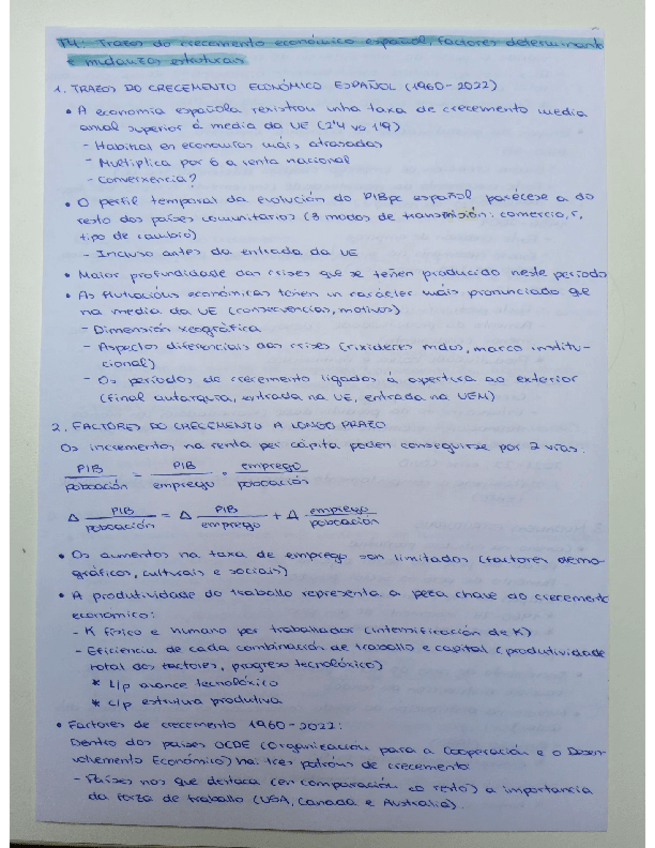 T4: Trazos do crecemento económico español, factores determinantes
e mudanzas estruturais
1. TRAZOS DO CRECEMENTO ECONÓMICO ESPAÑOL (1960-2022)
• A economía española rexistrou unha taxa de crecemento media
anual superior á media da UE (2'4 vs 1'9)
- Habitual en economías máis atrasadas
- Multiplica por 6 a renta nacional
- Converxencia?
• O perfil temporal da evolución do PIBpc español parécese a do
resto dos países comunitarios (3 modos de transmisión: comercio, r,
tipo de cambio)
- Incluso antes da entrada da UE
• Maior profundidade das crises que se teñen producido neste período
• As flutuacións económicas teñen un carácter máis pronunciado que
na media da UE (consecuencias, motivos)
- Dimensión xeográfica
- Aspectos diferenciais das crises (rixideces mdos, marco institu-
cional)
- Os períodos de crecemento ligados á apertura ao exterior
(final autarquía, entrada na UE, entrada na UEM)
2. FACTORES DO CRECEMENTO A LONGO PRAZO
Os incrementos na renta per cápita poden conseguirse por 2 vías:
PIB/poboación = PIB/emprego · emprego/poboación
Δ PIB/poboación = Δ PIB/emprego + Δ emprego/poboación
• Os aumentos na taxa de emprego son limitados (factores demo-
gráficos, culturais e sociais)
• A produtividade do traballo representa a peza chave do crecemento
económico:
- K físico e humano por traballador (intensificación de K)
- Eficiencia de cada combinación de traballo e capital (produtividade
total dos factores, progreso tecnolóxico)
* l/p avance tecnolóxico
* c/p estrutura produtiva
• Factores de crecemento 1960-2022:
Dentro dos países OCDE (Organización para a Cooperación e o Desen-
volvemento Económico) hai tres patróns de crecemento:
- Países nos que destaca (en comparación co resto) a importancia
da forza de traballo (USA, Canada e Australia).